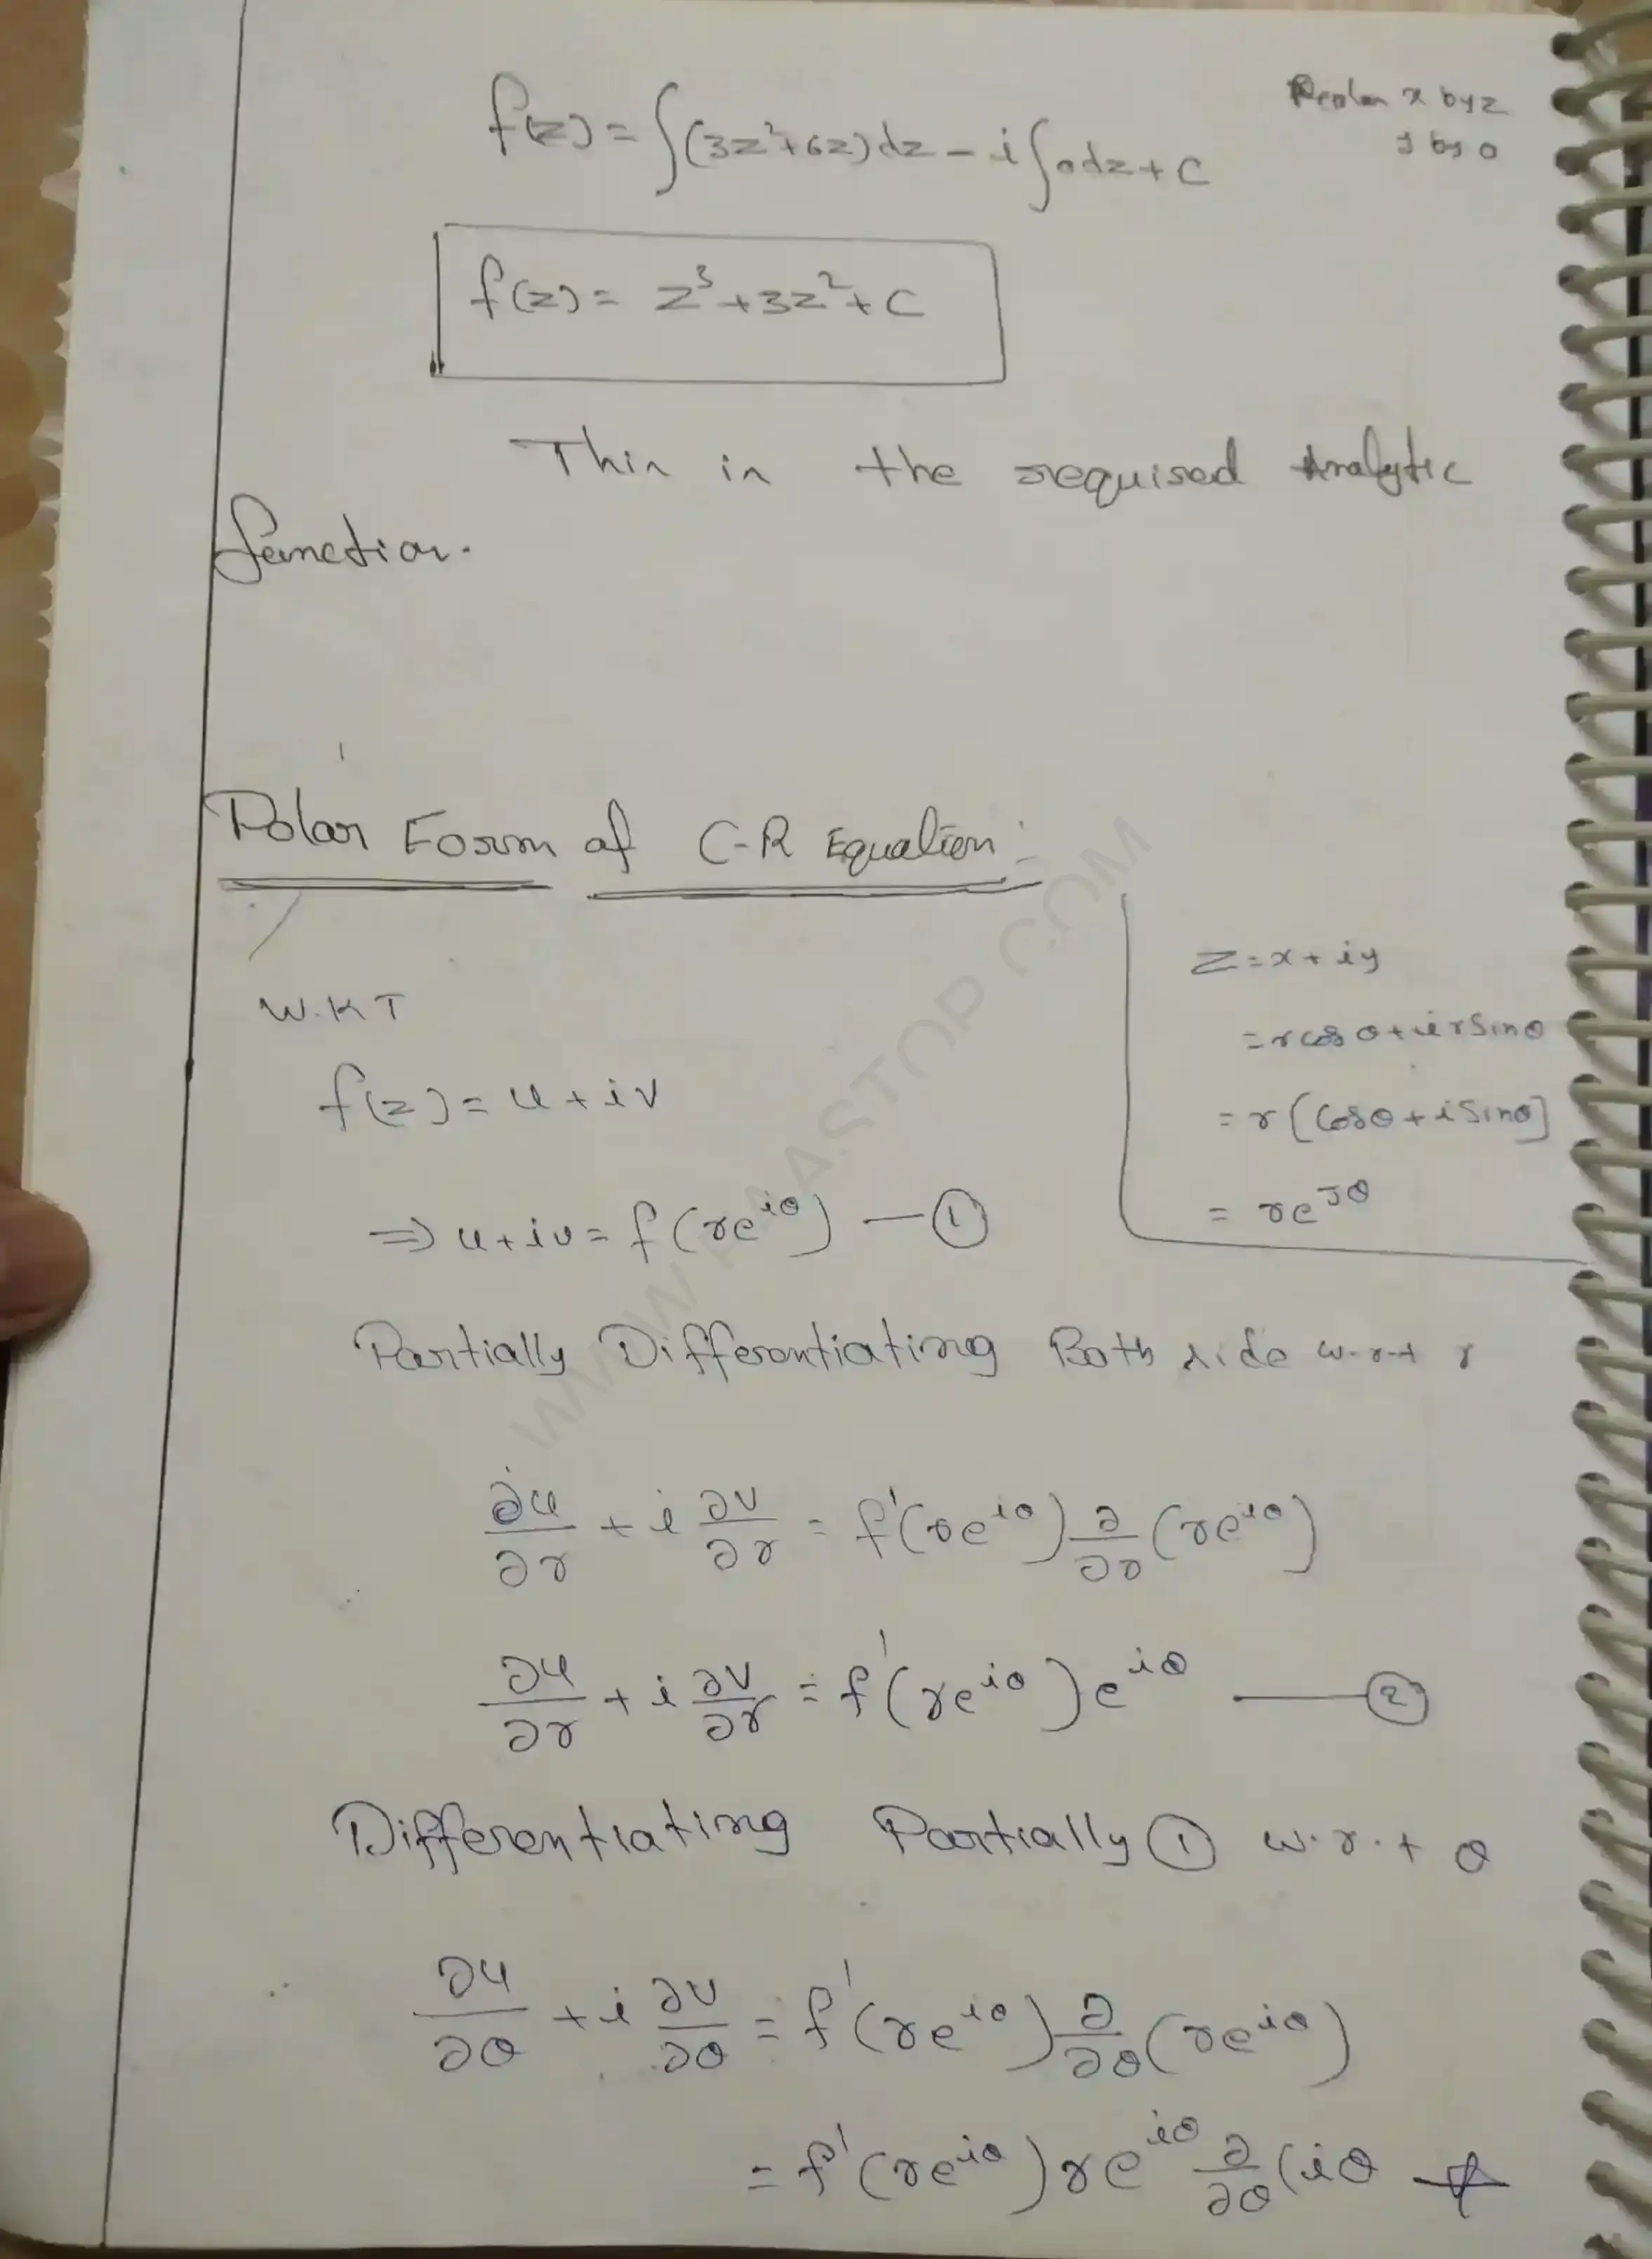 f(z) = ∫(3z²+6z)dz - i∫0dz + C
x by z
y by 0
f(z) = z³+3z²+C
This is the required Analytic
function.
Polar Form of C-R Equation:
W.K.T
f(z) = u + iv
⇒ u+iv = f(re^{iθ}) — ①
z = x + iy
= r cos θ + i r sin θ
= r [cos θ + i sin θ]
= re^{Jθ}
Partially Differentiating Both side w.r.t r
∂u/∂r + i ∂v/∂r = f'(re^{iθ}) ∂/∂r (re^{iθ})
∂u/∂r + i ∂v/∂r = f'(re^{iθ}) e^{iθ} — ②
Differentiating Partially ① w.r.t θ
∂u/∂θ + i ∂v/∂θ = f'(re^{iθ}) ∂/∂θ (re^{iθ})
= f'(re^{iθ}) re^{iθ} ∂/∂θ (iθ
WWW.FAASTOP.COM